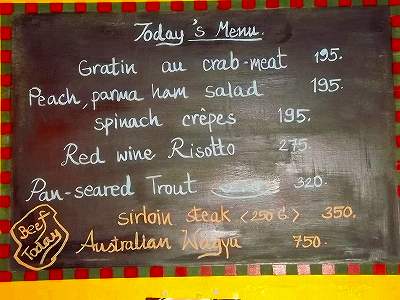 Today's Menu.
Gratin au crab-meat 195.
Peach, parma ham salad 195.
spinach crêpes 195.
Red wine Risotto 275.
Pan-seared Trout 320.
sirloin steak <250 G> 350.
Beef Today
Australian Wagyu 750.